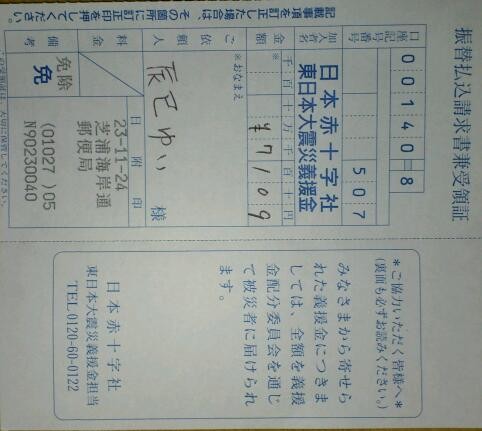 振替払込請求書兼受領証
口座記号番号
00140=8
507
加入者名
日本赤十字社
東日本大震災義援金
金額
千百十万千百十円
¥7109
ご依頼人
*おなまえ
辰巳ゆい 様
料金
日附印
備考
免除
免
23-11-24
芝浦海岸通
郵便局
(01027)05
N90230040
記載事項を訂正した場合は、その箇所に訂正印を押してください。
*ご協力いただく皆様へ*
(裏面も必ずお読みください。)
みなさまから寄せら
れた義援金につきま
しては、全額を義援
金配分委員会を通じ
て被災者に届けられ
ます。
日本赤十字社
東日本大震災義援金担当
TEL.0120-60-0122